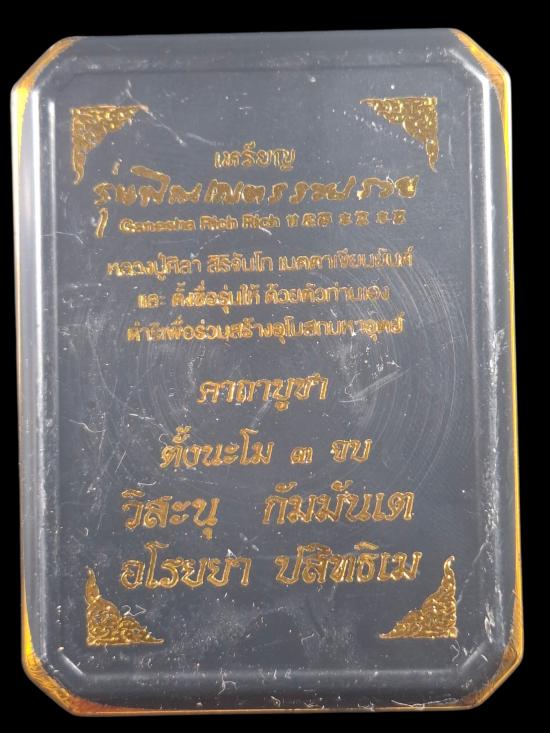 เหรียญ
รุ่นพิฆเนตรรวยรวย
Ganesha Rich Rich
หลวงปู่ศิลา สิริจันโท เมตตาเขียนยันต์
และ ตั้งชื่อรุ่นให้ ด้วยตัวท่านเอง
เพื่อร่วมสร้างอุโบสถมหาอุตย์
คาถาบูชา
ตั้งนะโม ๓ จบ
วิสะนุ กัมมันเต
อโรยยา ปสิทธิเม